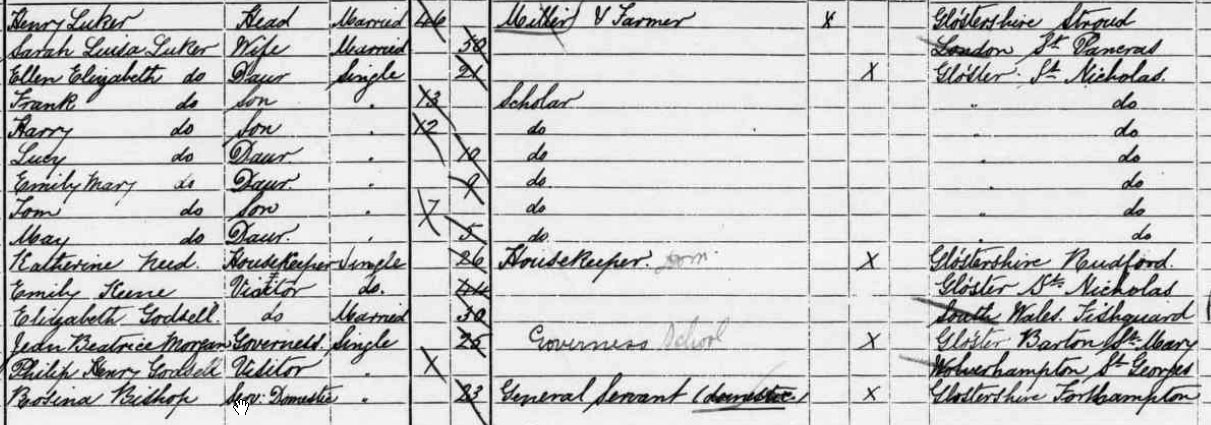 Henry Luker Head Married 46 Miller & Farmer X Glostershire Stroud
Sarah Luisa Luker Wife Married 50 London St Pancras
Ellen Elizabeth do Daur Single 21 X Gloster St Nicholas
Frank do Son " 13 Scholar " do
Harry do Son " 12 do " do
Lucy do Daur " 10 do " do
Emily Mary do Daur. " 9 do " do
Tom do Son " 7 do " do
May do Daur. " 5 do do
Katherine Need. Housekeeper Single 26 Housekeeper. Dom. X Glostershire Rudford.
Emily Keene Visitor do. Gloster St Nicholas
Elizabeth Godsell. do Married 50 South Wales. Fishguard
Jean Beatrice Morgan Governess. Single 25 Governess School X Gloster Barton St Mary
Philip Henry Godsell Visitor " Wolverhampton St Georges
Rosina Bishop Serv. Domestic " 23 General Servant (domestic) X Glostershire Forthampton